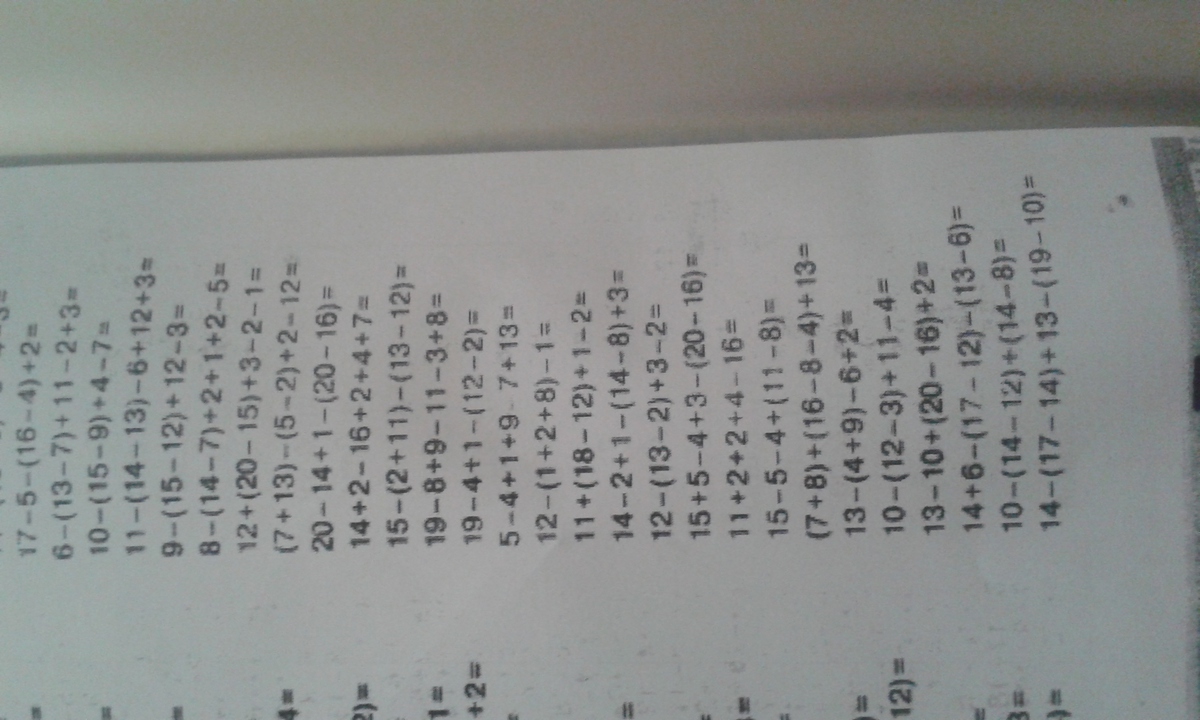 17-5-(16-4)+2=
6-(13-7)+11-2+3=
10-(15-9)+4-7=
11-(14-13)-6+12+3=
9-(15-12)+12-3=
8-(14-7)+2+1+2-5=
12+(20-15)+3-2-1=
(7+13)-(5-2)+2-12=
20-14+1-(20-16)=
14+2-16+2+4+7=
15-(2+11)-(13-12)=
19-8+9-11-3+8=
19-4+1-(12-2)=
5-4+1+9-7+13=
12-(1+2+8)-1=
11+(18-12)+1-2=
14-2+1-(14-8)+3=
12-(13-2)+3-2=
15+5-4+3-(20-16)=
11+2+2+4-16=
15-5-4+(11-8)=
(7+8)+(16-8-4)+13=
13-(4+9)-6+2=
10-(12-3)+11-4=
13-10+(20-16)+2=
14+6-(17-12)-(13-6)=
10-(14-12)+(14-8)=
14-(17-14)+13-(19-10)=
4=
2)=
1=
+2=
12)=